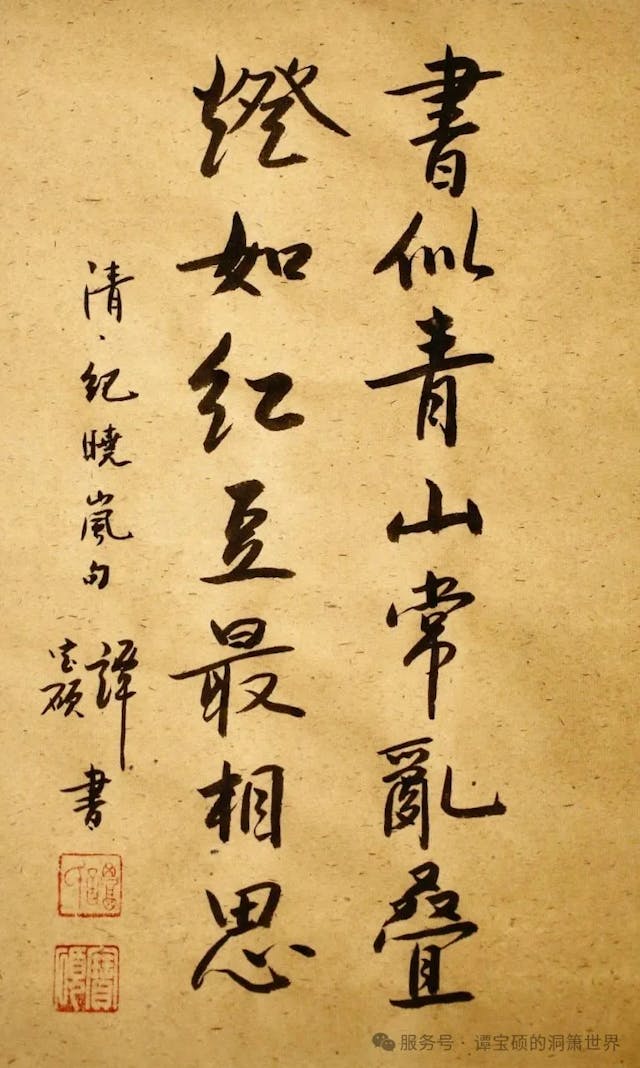 書似青山常亂疊
燈如紅豆最相思
清、紀曉嵐句
譚宝碩書
服务号 · 谭宝硕的洞箫世界